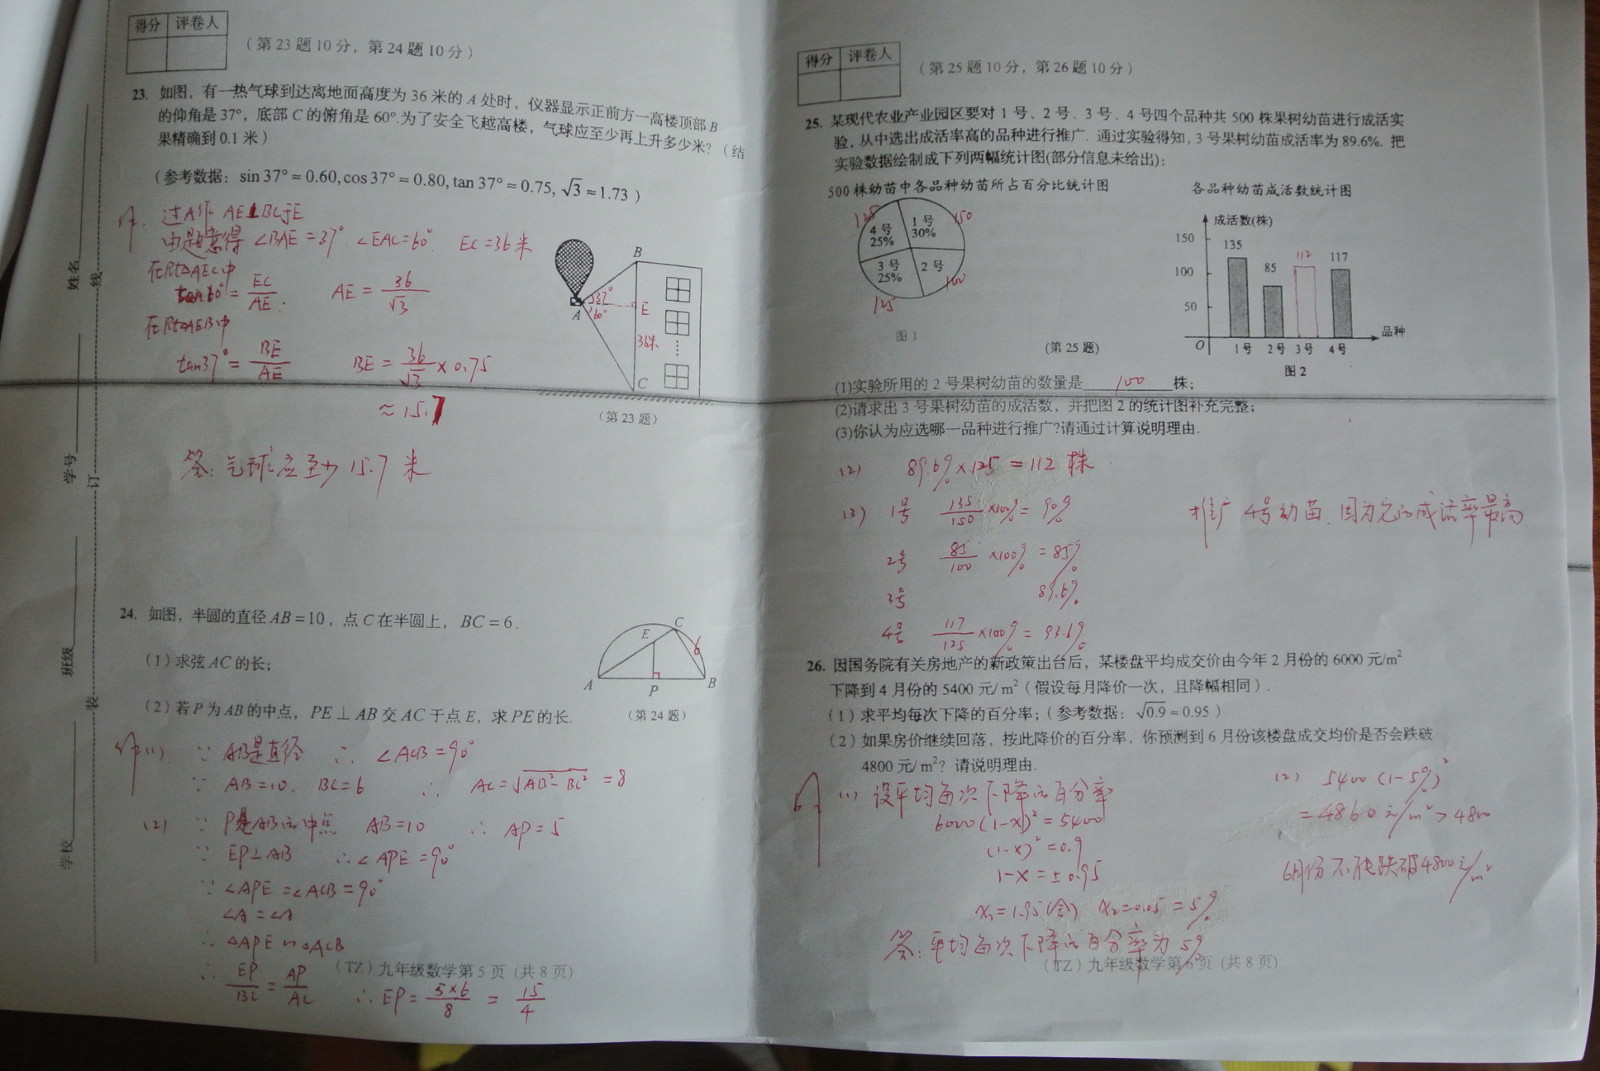 得分 评卷人
（第 23 题 10 分，第 24 题 10 分）
23. 如图，有一热气球到达离地面高度为 36 米的 A 处时，仪器显示正前方一高楼顶部 B
的仰角是 37°，底部 C 的俯角是 60°.为了安全飞越高楼，气球应至少再上升多少米？（结
果精确到 0.1 米）
（参考数据：sin 37° ≈ 0.60, cos 37° ≈ 0.80, tan 37° ≈ 0.75, √3 ≈ 1.73 ）
过A作 AE⊥BC于E
由题意得 ∠BAE = 37° ∠EAC = 60° EC = 36米
在Rt△AEC中
tan60° = EC/AE . AE = 36/√3
在Rt△AEB中
tan37° = BE/AE BE = 36/√3 × 0.75
≈ 15.7
答：气球应至少 15.7 米
B
37°
60°
A
E
36米
C
（第 23 题）
24. 如图，半圆的直径 AB = 10，点 C 在半圆上，BC = 6 .
（1）求弦 AC 的长；
（2）若 P 为 AB 的中点，PE ⊥ AB 交 AC 于点 E，求 PE 的长.
C
E
6
A P B
（第 24 题）
解(1) ∵ AB是直径 ∴ ∠ACB = 90°
∵ AB=10. BC=6 ∴ AC=√AB²-BC² = 8
(2) ∵ P是AB的中点 AB=10 ∴ AP = 5
∵ EP⊥AB ∴∠APE = 90°
∵ ∠APE = ∠ACB = 90°
∠A = ∠A
∴ △APE ∽ △ACB
∴ EP/BC = AP/AC ∴ EP = 5×6/8 = 15/4
（TZ）九年级数学第 5 页（共 8 页）
姓名
线
学号
订
班级
装
学校
得分 评卷人
（第 25 题 10 分，第 26 题 10 分）
25. 某现代农业产业园区要对 1 号、2 号、3 号、4 号四个品种共 500 株果树幼苗进行成活实
验，从中选出成活率高的品种进行推广. 通过实验得知，3 号果树幼苗成活率为 89.6%. 把
实验数据绘制成下列两幅统计图(部分信息未给出)：
500 株幼苗中各品种幼苗所占百分比统计图
125
150
4 号
25%
1 号
30%
3 号
25%
2 号
100
125
图 1
（第 25 题）
各品种幼苗成活数统计图
成活数(株)
150
100
50
O
135
85
112
117
1号 2号 3号 4号
品种
图 2
(1)实验所用的 2 号果树幼苗的数量是 100 株；
(2)请求出 3 号果树幼苗的成活数，并把图 2 的统计图补充完整；
(3)你认为应选哪一品种进行推广?请通过计算说明理由.
(2) 89.6% × 125 = 112 株
(3) 1号 135/150 ×100% = 90%
2号 85/100 ×100% = 85%
3号 89.6%
4号 117/125 ×100% = 93.6%
推广 4号幼苗. 因为它的成活率最高
26. 因国务院有关房地产的新政策出台后，某楼盘平均成交价由今年 2 月份的 6000 元/m²
下降到 4 月份的 5400 元/ m²（假设每月降价一次，且降幅相同）.
（1）求平均每次下降的百分率；（参考数据：√0.9 ≈ 0.95 ）
（2）如果房价继续回落，按此降价的百分率，你预测到 6 月份该楼盘成交均价是否会跌破
4800 元/ m²？请说明理由.
解 (1) 设平均每次下降的百分率
6000 (1-x)² = 5400
(1-x)² = 0.9
1-x = ±0.95
x₁ = 1.95(舍) x₂=0.05 = 5%
答：平均每次下降的百分率为 5%
(2) 5400 (1-5%)²
= 4860 元/m² > 4800
6月份不 跌破4800元/m²
（TZ）九年级数学第 6 页（共 8 页）